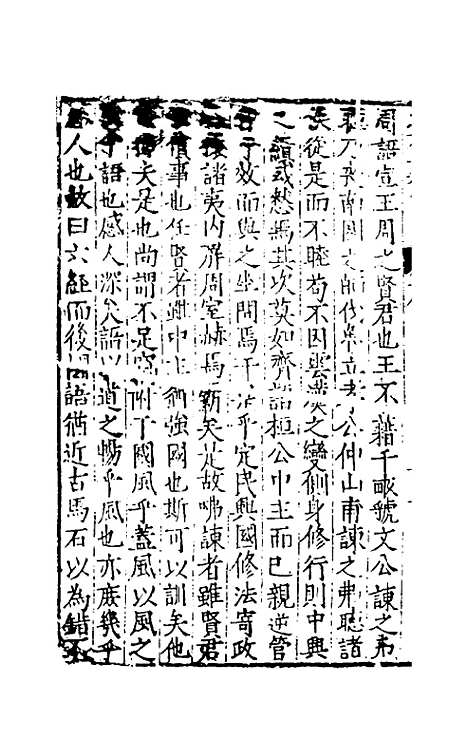 周語宣王周之賢君也王不藉千畝虢文公諫之弗
南國之師 立 公仲山甫諫之弗聽諸
從是而不睦苟不因雲漢之變側身修行則中興
之績或愁焉其次莫如齊語桓公中主而已親逆管
子于效而與之坐問焉 乎定民興國修法寄政
諸夷內屏周室赫焉霸矣是故咈諫者雖賢君
事也任賢者雖中主 強國也斯可以訓矣他
矣是也尚謂不足 附于國風乎蓋風以風之
語也感人深 語以道之暢乎風也亦庶幾乎
人也故曰六經而後國語猶近古焉石以為錯